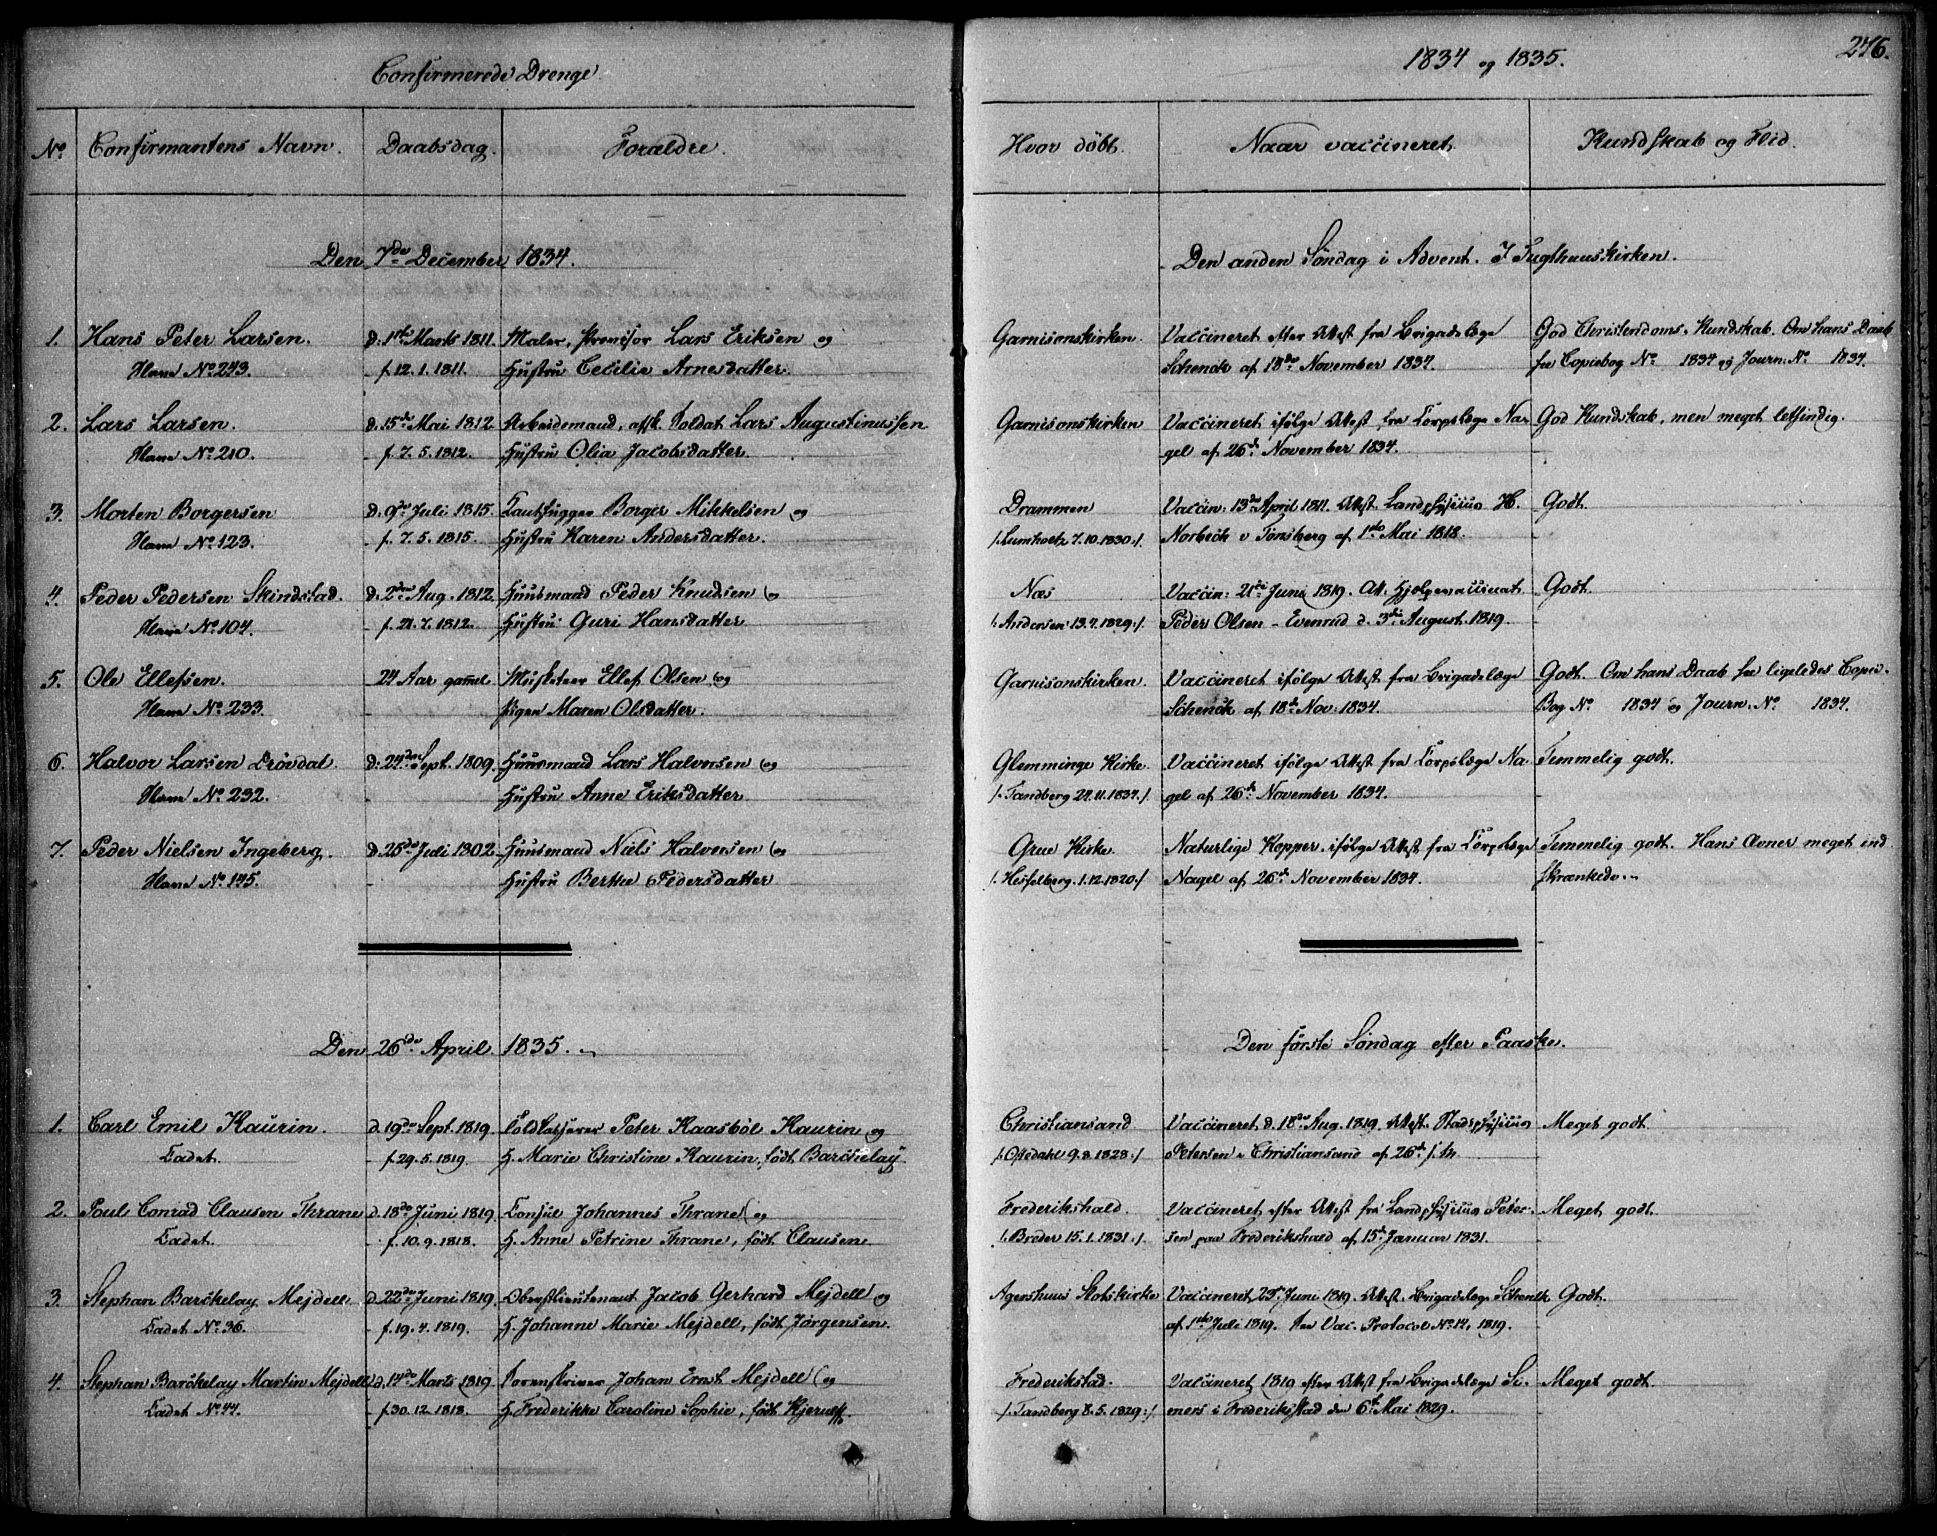 Confirmerede Drenge.
1834 og 1835.
276.
No Confirmantens Navn. Daabsdag. Forældre. Hvor döbt. Naar vaccineret. Kundskab og Flid.
Den 7de December 1834. Den anden Söndag i Advent. I Tugthuuskirken.
1. Hans Peter Larsen. d. 1ste Marts 1811. Maler, Lars Eriksen og Garnisonskirken. Vaccineret efter Attest fra Brigadelæge God Christendoms-Kundskab. Om hans Daab
Slave No 243. f. 12.1.1811. Hustru Cecilie Arnesdatter. Schenck af 18de November 1834. see Copiebog No 1834 og Journ. No 1834.
2. Lars Larsen. d. 15de Mai 1812. Arbeidsmand, afsk. Soldat Lars Augustinussen Garnisonskirken Vaccineret ifölge Attest fra Corpslæge Na- God Kundskab, men meget letsindig.
Slave No 210. f. 7.5.1812. Hustru Olia Jacobsdatter. gel af 26de November 1834.
3. Morten Borgersen d. 9de Juli 1815. Borger Mikkelsen og Drammen Vaccin: 13de April 1811. Attest. Landphysicus H. Godt.
Slave No 123. f. 7.5.1815. Hustru Karen Andersdatter. /:Lumholtz 7.10.1830:/ Norbeck v Tönsberg af 1ste Mai 1818.
4. Peder Pedersen Skindstad. d. 2den Aug. 1812. Huusmand Peder Knudsen og Næs Vaccin: 21de Juni 1819. Att. Hjelpevaccinat. Godt.
Slave No 104. f. 21.7.1812. Hustru Guri Hansdatter /:Andersen 13.7.1829:/ Peder Olsen Evenrud d. 3die August 1819.
5. Ole Ellefsen. 24 Aar gammel. Musketeer Ellef Olsen og Garnisonskirken. Vaccineret ifölge Attest fra Brigadelæge Godt. Om hans Daab see ligeledes Copie-
Slave No 233. Pigen Maren Olsdatter. Schenck af 18de Nov: 1834. Bog No 1834 og Journ. No 1834.
6. Halvor Larsen Drövdal. d. 24de Sept. 1809. Huusmand Lars Halvorsen og Glemminge Kirke. Vaccineret ifölge Attest fra Corpslæge Na- Temmelig godt.
Slave No 232. Hustru Anne Eriksdatter. /:Tandberg 24.11.1834:/ gel af 26de November 1834.
7. Peder Nielsen Ingeberg. d. 25de Juli 1802. Huusmand Niels Halvorsen og Grue Kirke. Naturlige Kopper, ifölge Attest fra Corpslæge Temmelig godt. Hans Evner meget ind-
Slave No 145. Hustru Berthe Pedersdatter /:Hesselberg 1.12.1820:/ Nagel af 26de November 1834. skrænkede.
Den 26de April 1835. Den förste Söndag efter Paaske.
1. Carl Emil Kaurin. d. 19de Sept. 1819. Toldkasserer Peter Kaasböl Kaurin og Christiansand Vaccineret d. 18de Aug. 1819. Attest. Stadsphysicus Meget godt.
Cadet. f. 29.5.1819. H. Marie Christine Kaurin, född Barckelay. /:Opdahl 9.8.1828:/ Petersen i Christiansand af 26de
2. Poul Conrad Clausen Thrane d. 18de Juni 1819. Consul Johannes Thrane og Frederikshald. Vaccineret efter Attest fra Landphysicus Peter- Meget godt.
Cadet. f. 10.9.1818. H. Anne Petrine Thrane, födt Clausen. /:Breder 15.1.1831:/ sen paa Frederikshald af 15de Januar 1831.
3. Stephan Barckelay Mejdell d. 22de Juni 1819. Oberstlieutenant Jacob Gerhard Mejdell og Agershuus Slotskirke Vaccineret 23de Juni 1819. Attest. Brigadelæge Schenck Godt.
Cadet No 36. f. 19.4.1819. H. Johanne Marie Mejdell, födt Jörgensen. af 1ste Juli 1819. see Vac. Protocol No 14, 1819.
4. Stephan Barckelay Martin Mejdell d. 14de Marts 1819. Sorenskriver Johan Ernst Mejdell og Frederikstad. Vaccineret 1819 efter Attest fra Brigadelæge Si- Meget godt.
Cadet No 44. f. 30.12.1818. H. Frederikke Caroline Sophie, födt Hjerulff. /:Tandberg 8.5.1829:/ mers i Frederikstad den 6te Mai 1829.